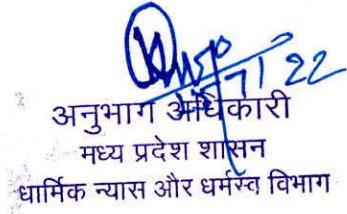 अनुभाग अधिकारी
मध्य प्रदेश शासन
धार्मिक न्यास और धर्मस्व विभाग